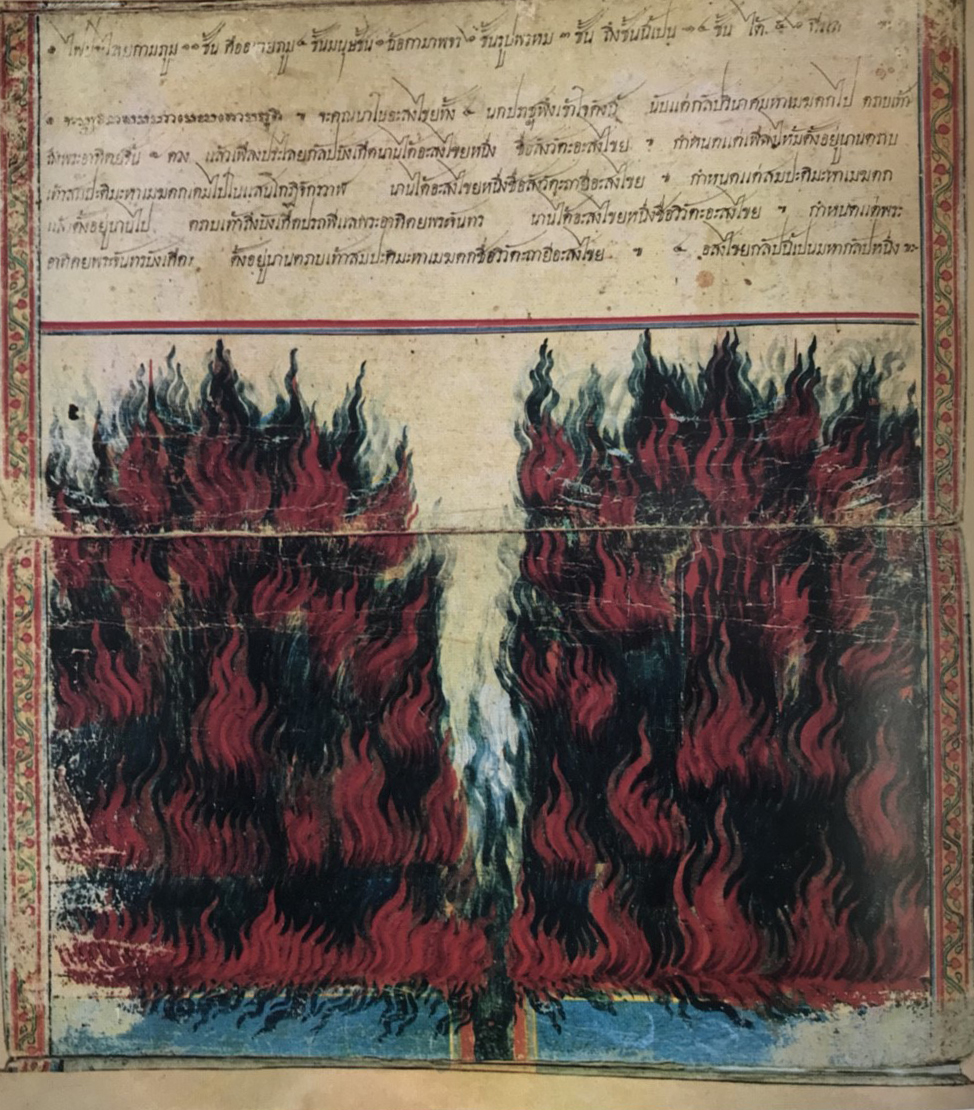 กามภูม ๑๑ ชั้น คืออบายภูม ๔ ชั้นมนุษชั้น ๑ ฉ้อกามาพจร ๖ ชั้นรูปพรหม ๓ ชั้น ถึงชั้นนี้เปน ๑๔ ชั้น ไต้
จะคุณนาในอะสงไขยทั้ง ๔ นกปราชฺพึงเข้าใจดังนี้ นับแต่กัลปวินาศมหาเมฆตกไป ตราบเท้า
ถึงพระอาทิตยขึ้น ๗ ดวง แล้วเพลิงประไลยกัลปบังเกิดนานได้อะสงไขยหนึ่ง ชื่อสังวัตะอะสงไขย ฯ กำหนดแต่เพลิงไหม้ตั้งอยู่นานตราบ
เท้าสมปะติมะหาเมฆตกเตมไปในแสนโกฏิจักรวาฬ นานได้อะสงไขยหนึ่งชื่อสังวัตะถายีอะสงไขย ฯ กำหนดแต่สมปะติมะหาเมฆตก
แล้วตั้งอยู่นานไป ตราบเท้าถึงบังเกิดปรถพีแลพระอาทิตยพระจันทร นานได้อะสงไขยหนึ่งชื่อวิวัตะอะสงไขย ฯ กำหนดแต่พระ
อาทิตยพระจันทรบังเกิด ตั้งอยู่นานตราบเท้าสมปะติมะหาเมฆตกชื่อวิวัตะถายีอะสงไขย ฯ ๔ อสงไขยกัลปนี้เปนมหากัลปหนึ่ง